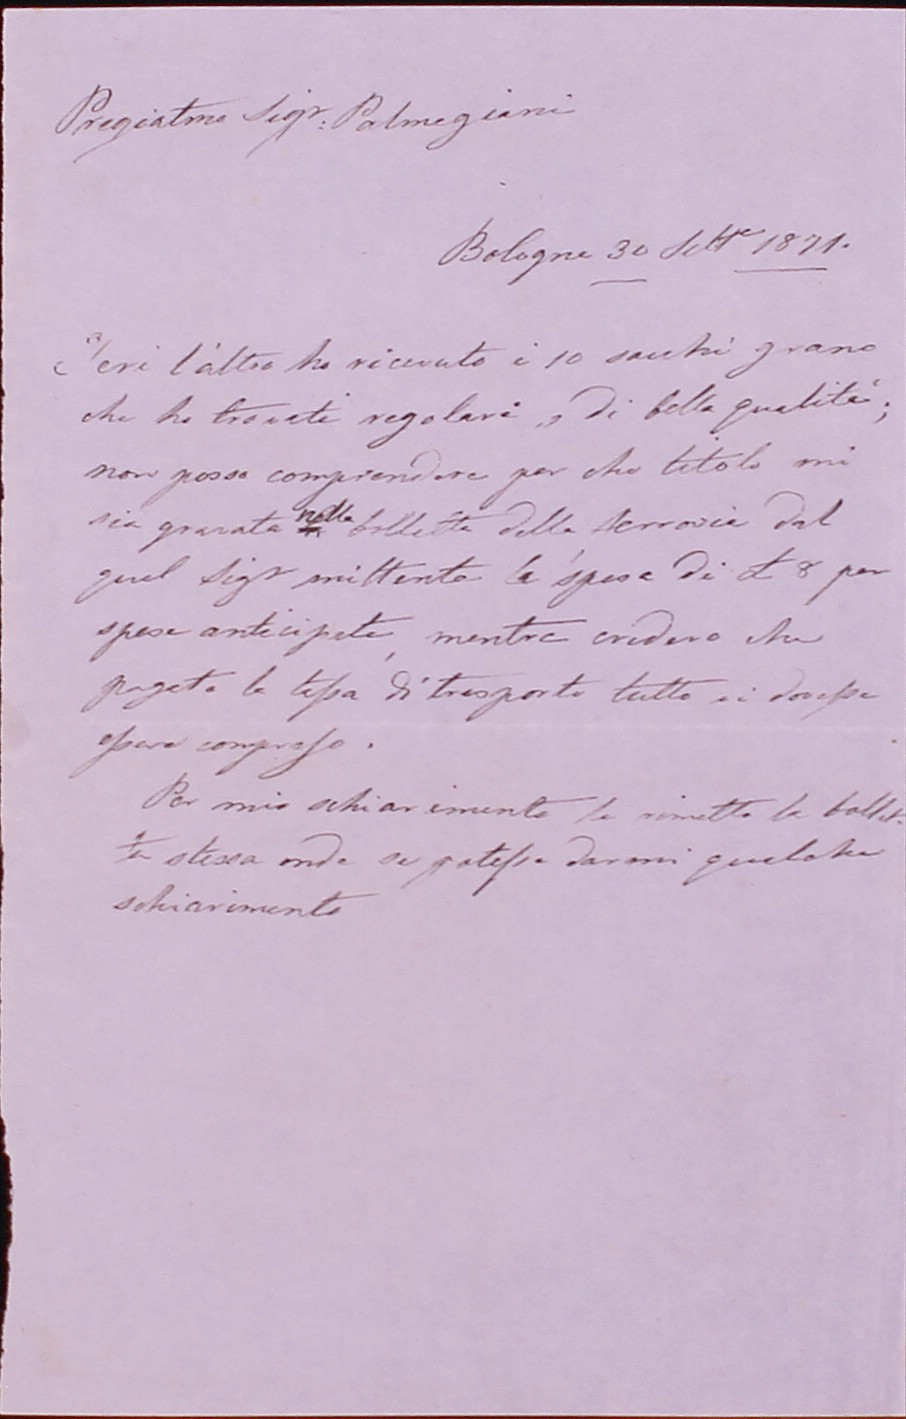 Pregiatmo Sigr: Palmegiani
Bologna 30 Settre 1871.
Ieri l'altro ho ricevuto i 10 sacchi grano
che ho trovati regolari, di bella qualità;
non posso comprendere per che titolo mi
sia gravata nella bolletta della ferrovia dal
quel Sigr mittente la spesa di £ 8 per
spese anticipate, mentre credevo che
pagata la tassa di trasporto tutto ci dovesse
essere compreso.
Per mio schiarimento le rimetto la bollet-
ta stessa onde se potesse darmi qualche
schiarimento